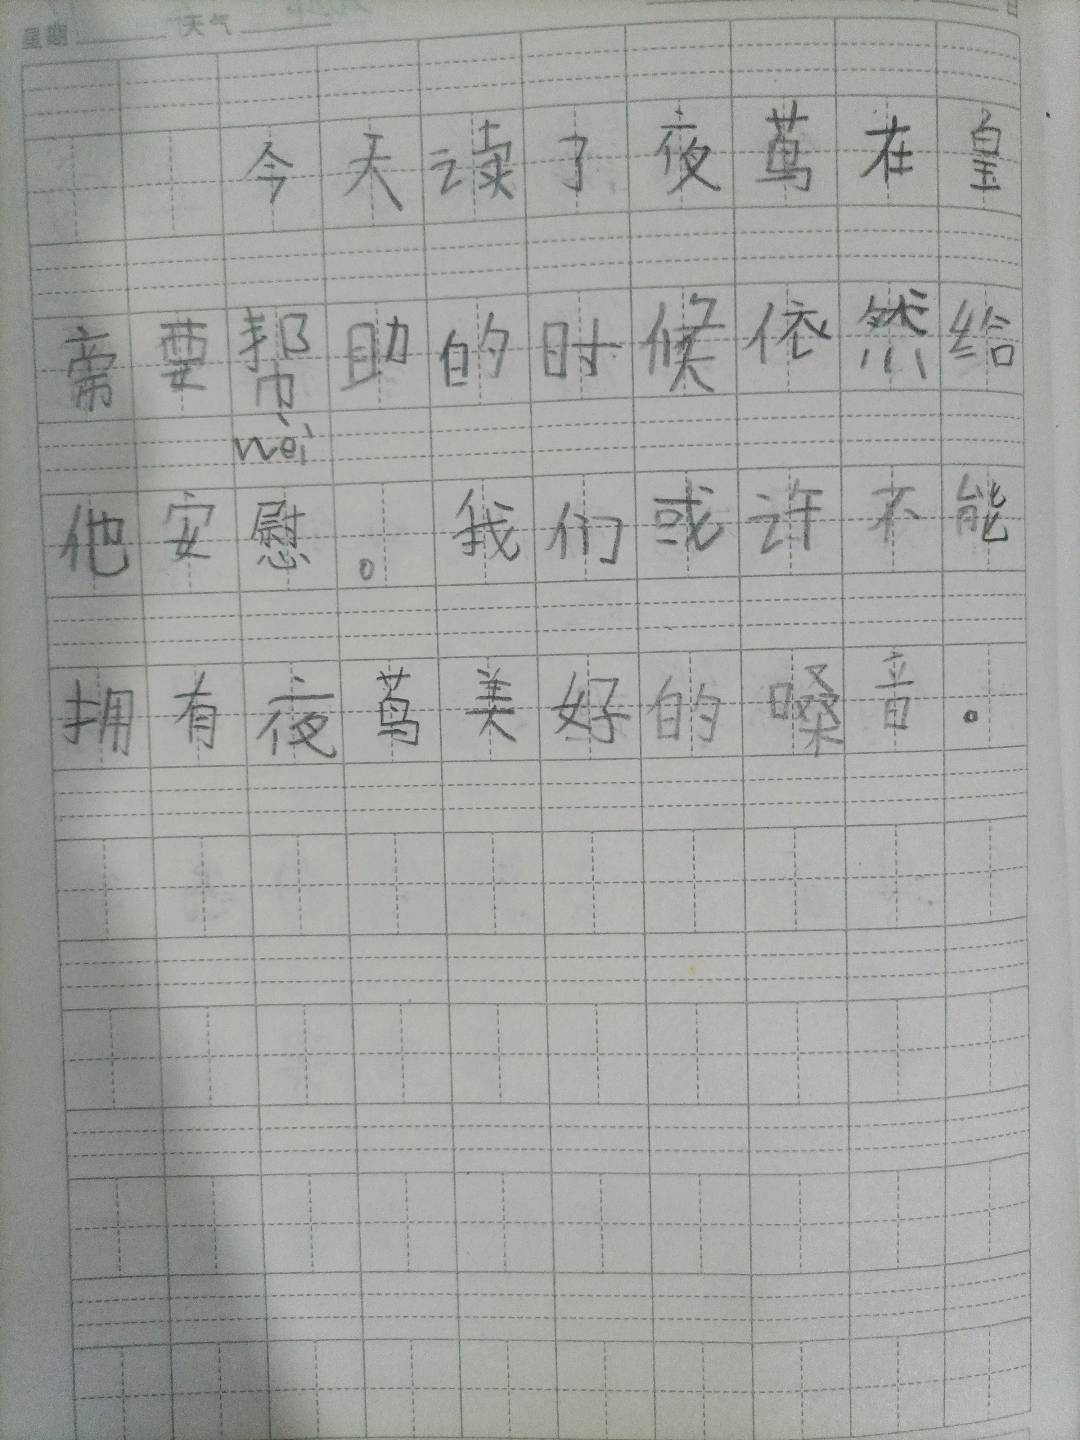 星期 天气 日
今天读了夜莺在皇
帝要帮助的时候依然给
wèi
他安慰。我们或许不能
拥有夜莺美好的嗓音。